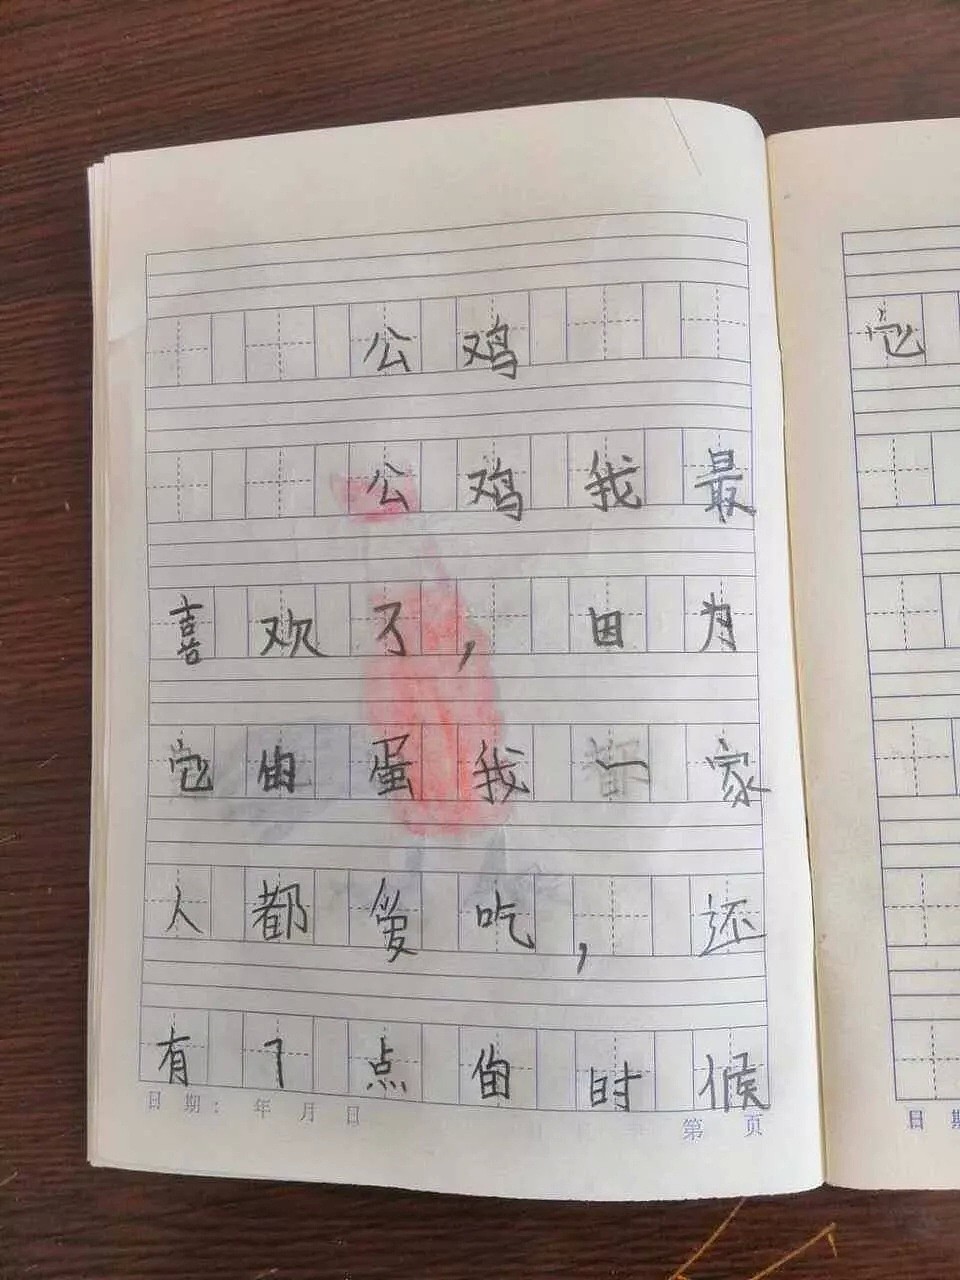 公鸡
公鸡我最
喜欢了，因为
它的蛋我一家
人都爱吃，还
有7点的时候
日期： 年 月 日 第 页
它
日 期